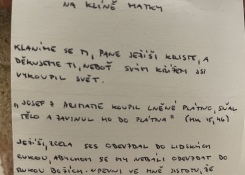 NA KLÍNĚ MATKY
KLANÍME SE TI, PANE JEŽÍŠI KRISTE, A
DĚKUJEME TI, NEBOŤ SVÝM KŘÍŽEM JSI
VYKOUPIL SVĚT.
„JOSEF Z ARIMATIE KOUPIL LNĚNÉ PLÁTNO, SŇAL
TĚLO A ZAVINUL HO DO PLÁTNA" (MK 15,46)
JEŽÍŠI, ZCELA SES ODEVZDAL DO LIDSKÝCH
RUKOU, ABYCHOM SE MY NEBÁLI ODEVZDAT DO
RUKOU BOŽÍCH. UPEVNI VE MNĚ JISTOTU, ŽE